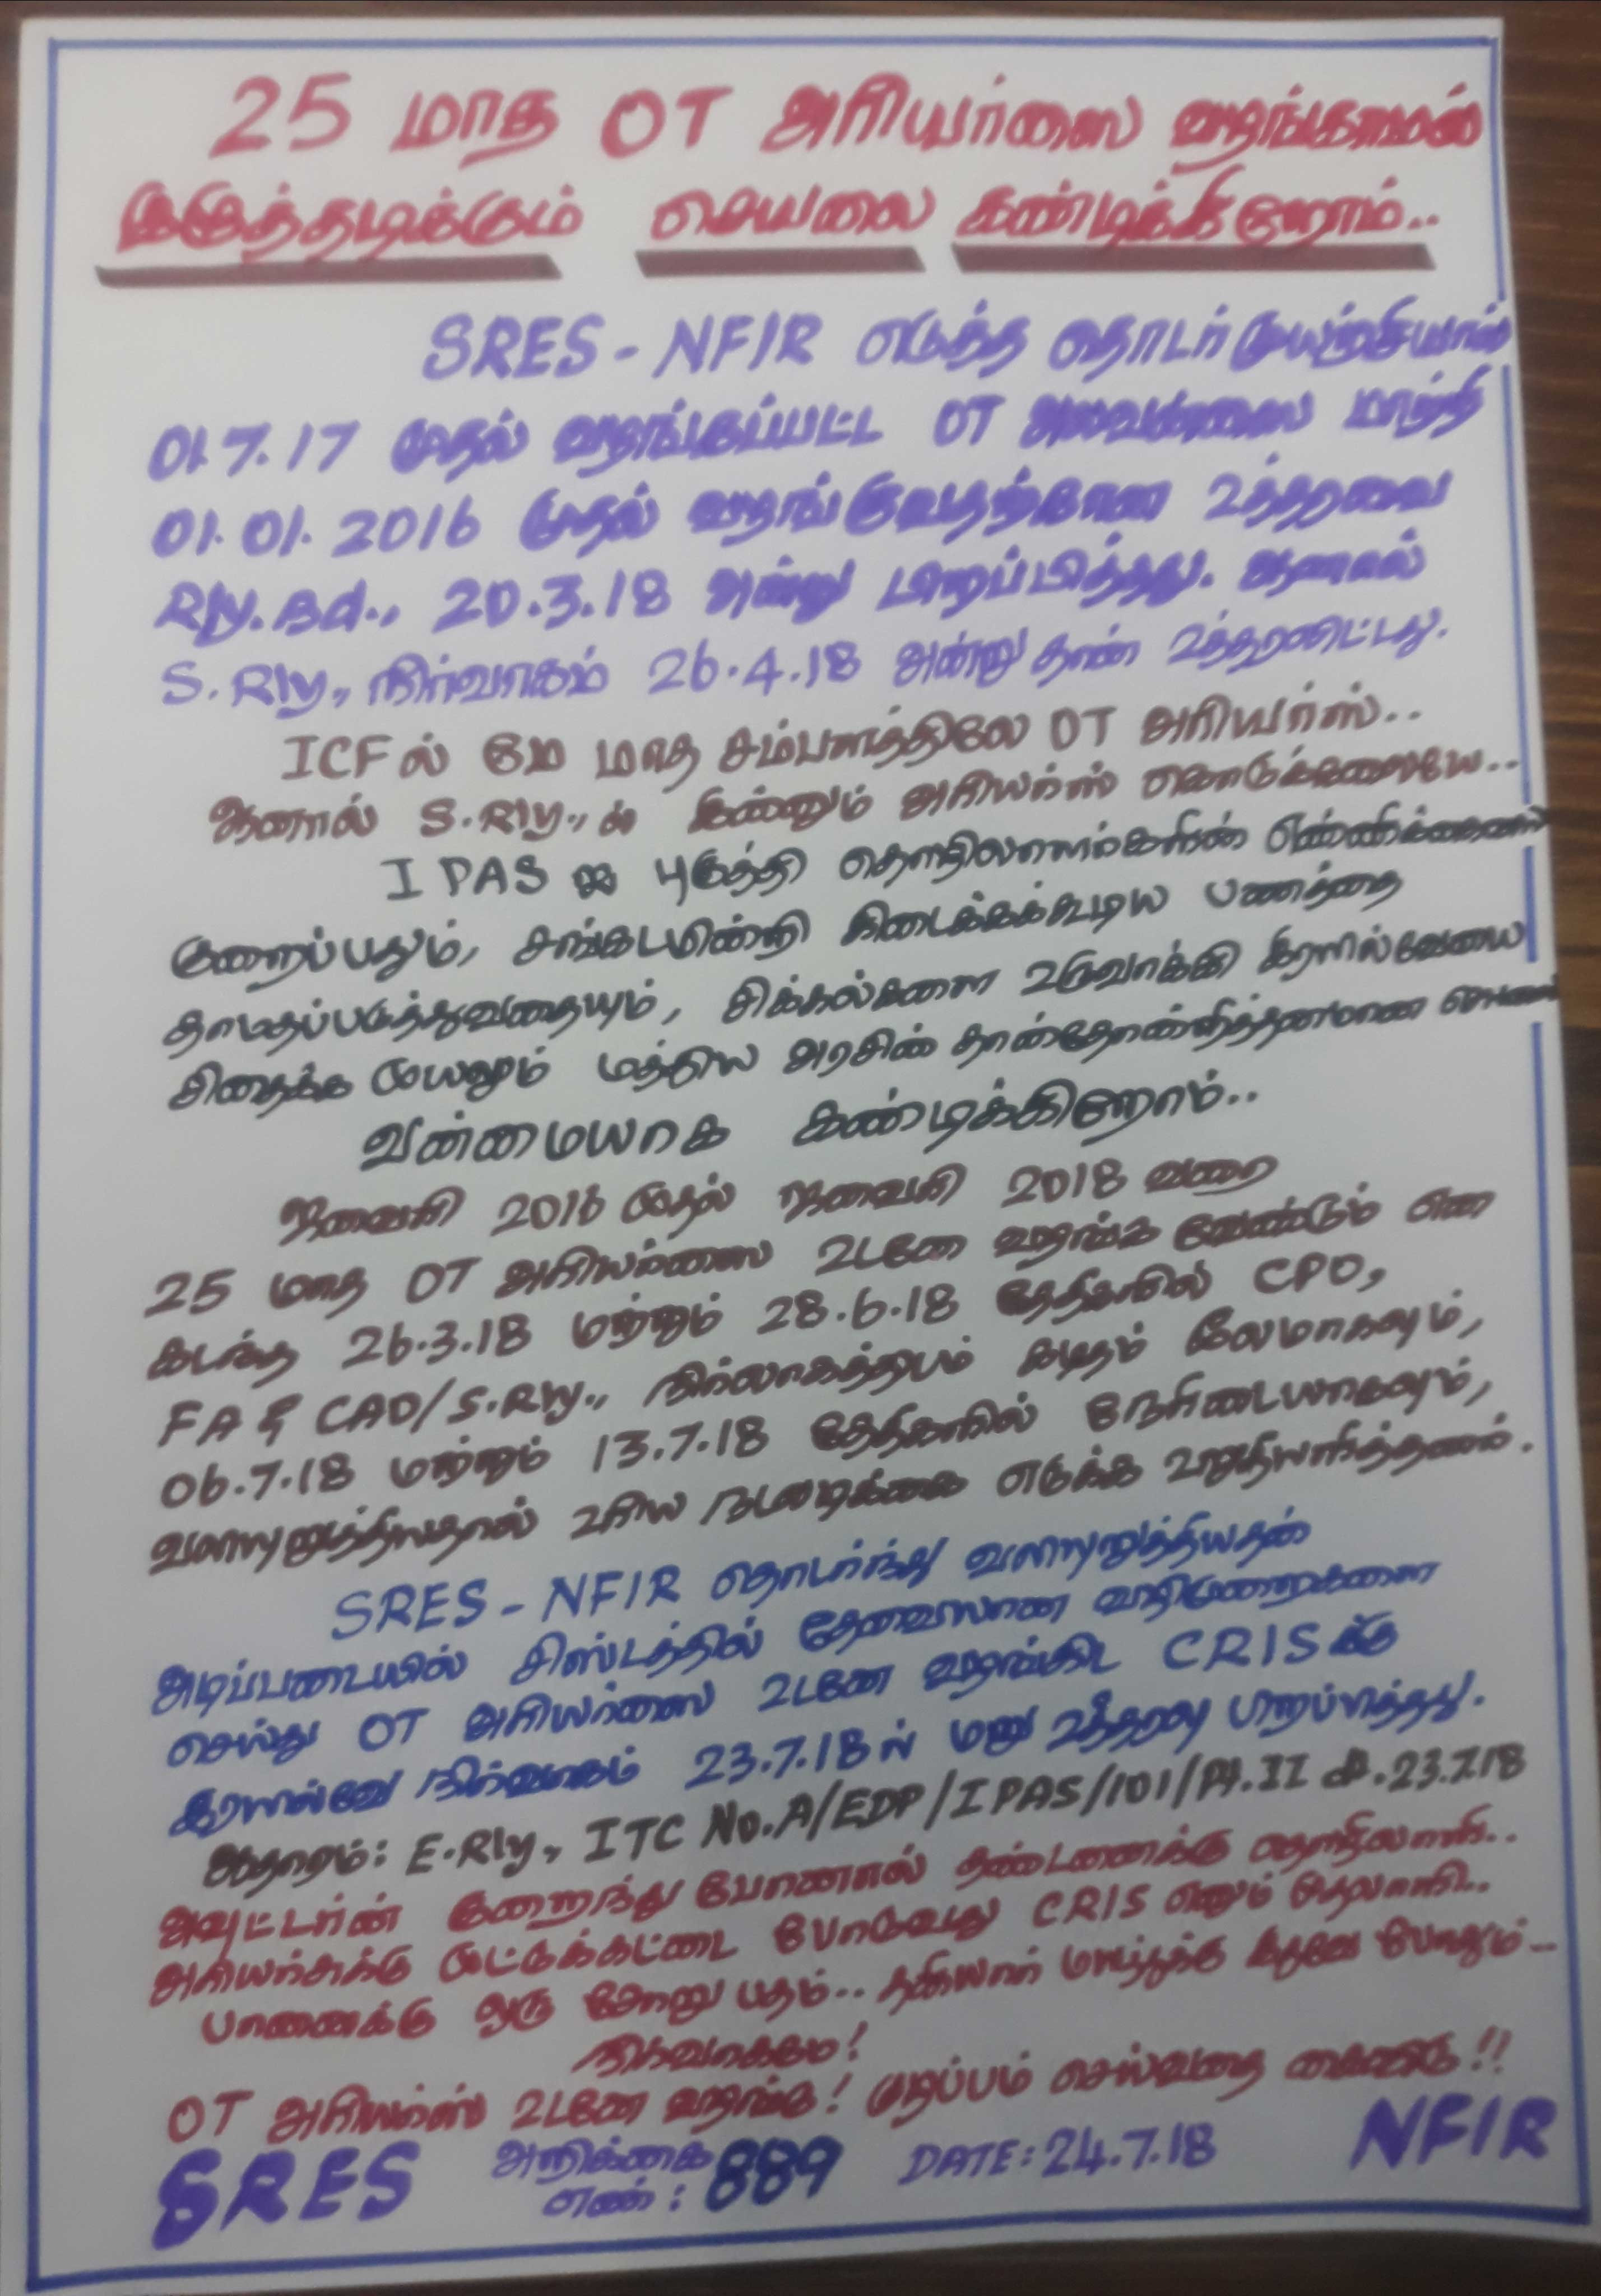 25 மாத OT அரியர்ஸை வழங்காமல்
இழுத்தடிக்கும் செயலை கண்டிக்கிறோம்..
SRES - NFIR எடுத்த தொடர் முயற்சியால்
01.7.17 முதல் வழங்கப்பட்ட OT அலவன்ஸை மாற்றி
01.01.2016 முதல் வழங்குவதற்கான உத்தரவை
Rly.Bd., 20.3.18 அன்று பிறப்பித்தது. ஆனால்
S.Rly., நிர்வாகம் 26.4.18 அன்று தான் உத்தரவிட்டது.
ICFல் மே மாத சம்பளத்திலே OT அரியர்ஸ்..
ஆனால் S.Rly.,ல் இன்னும் அரியர்ஸ் கொடுக்கலையே..
IPAS ஐ புகுத்தி தொழிலாளர்களின் எண்ணிக்கையை
குறைப்பதும், சங்கடமின்றி கிடைக்கக்கூடிய பணத்தை
தாமதப்படுத்துவதையும், சிக்கல்களை உருவாக்கி இரயில்வேயை
சிதைக்க முயலும் மத்திய அரசின் தான்தோன்றித்தனமான
வன்மையாக கண்டிக்கிறோம்..
ஜனவரி 2016 முதல் ஜனவரி 2018 வரை
25 மாத OT அரியர்ஸை உடனே வழங்க வேண்டும் என
கடந்த 26.3.18 மற்றும் 28.6.18 தேதிகளில் CPO,
FA & CAO/S.Rly., நிர்வாகத்திடம் கடிதம் மூலமாகவும்,
06.7.18 மற்றும் 13.7.18 தேதிகளில் நேரிடையாகவும்,
வலியுறுத்தியதால் உரிய நடவடிக்கை எடுக்க உறுதியளித்தனர்.
SRES - NFIR தொடர்ந்து வலியுறுத்தியதன்
அடிப்படையில் சிஸ்டத்தில் தேவையான வழிமுறைகளை
செய்து OT அரியர்ஸை உடனே வழங்கிட CRISக்கு
இரயில்வே நிர்வாகம் 23.7.18ல் மறு உத்தரவு பிறப்பித்தது.
ஆதாரம்: E.Rly., ITC No.A/EDP/IPAS/101/Pt.II dt.23.7.18
அவுட்டர்ன் குறைந்து போனால் தண்டனைக்கு தொழிலாளி..
அரியர்சுக்கு முட்டுக்கட்டை போடுவது CRIS எனும்
பானைக்கு ஒரு சோறு பதம்.. தனியார் மயத்துக்கு இதுவே போதும்..
நிர்வாகமே!
OT அரியர்ஸ் உடனே வழங்கு! குழப்பம் செய்வதை கைவிடு!!
SRES அறிக்கை எண்: 889 DATE: 24.7.18 NFIR